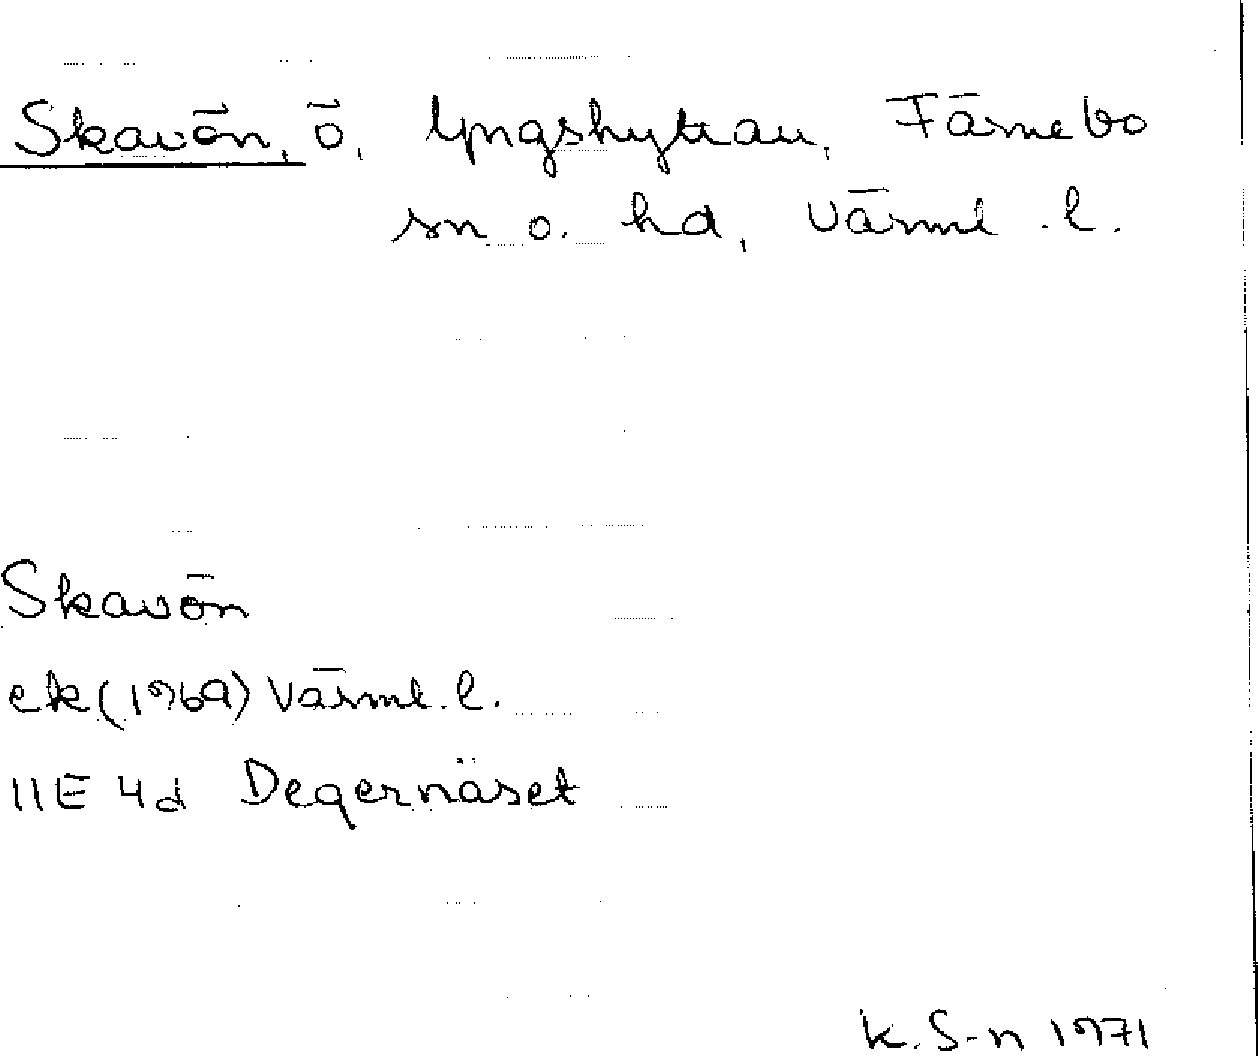 Skavön, ö, Yngshyttan, Färnebo
sn o. hd, Värml. l.
Skavön
ek (1969) Värml. l.
11E 4d Degernäset
K. S-n 1971